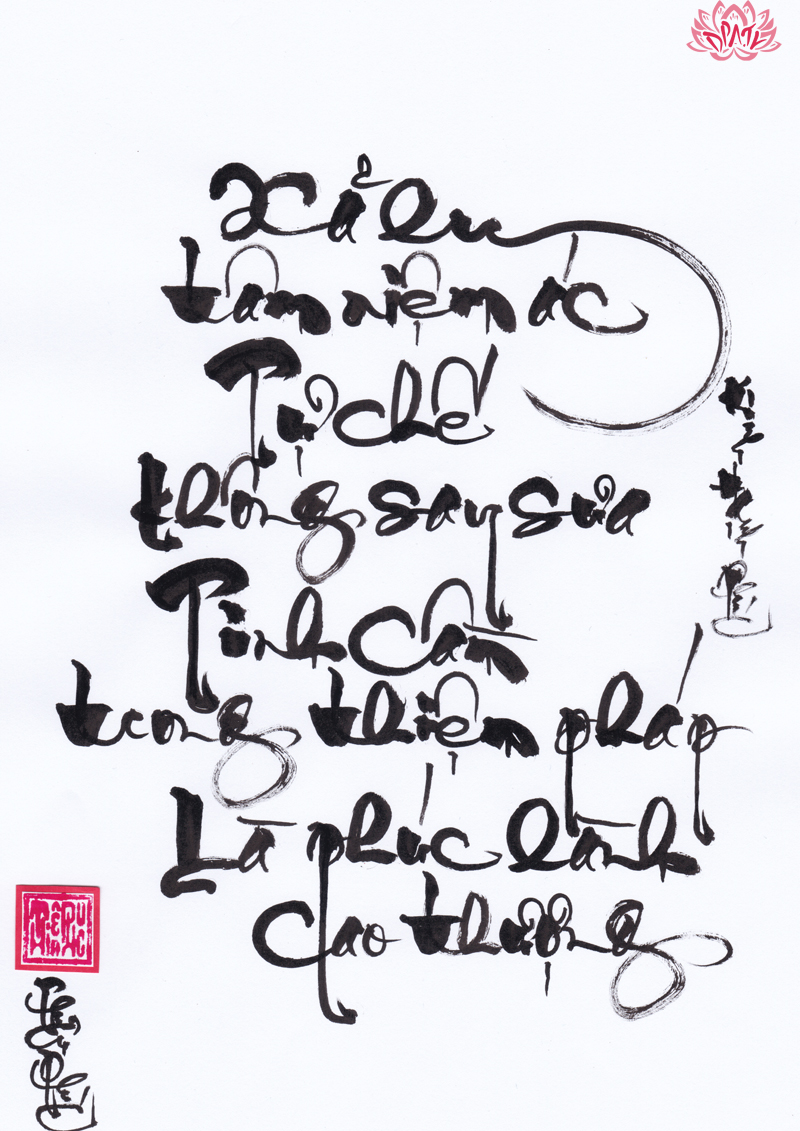 Xả ly
tâm niệm ác
Tự chế
không say sưa
Tinh cần
trong thiện pháp
Là phúc lành
cao thượng